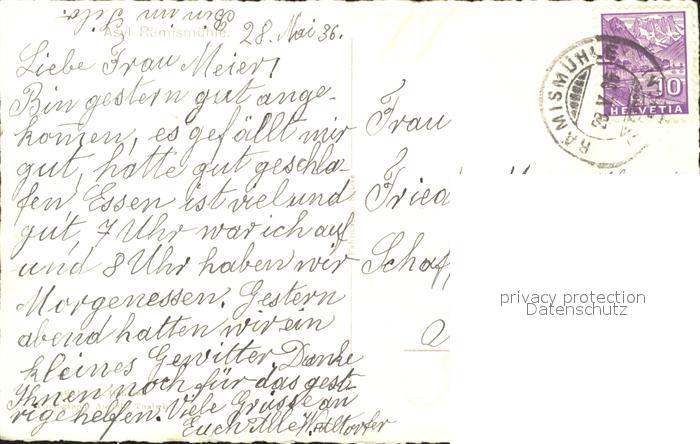 Asyl Rämismühle.
28. Mai 36.
Liebe Frau Meier,
Bin gestern gut ange-
komen, es gefällt mir
gut, hatte gut geschla-
fen, Essen ist viel und
gut, 7 Uhr war ich auf
und 8 Uhr haben wir
Morgenessen. Gestern
abend hatten wir ein
kleines Gewitter Danke
Ihnen noch für das gest-
rige helfen. Viele Grüsse an
Euch alle
Frau
Fried
Schaf
RÄMISMÜHLE
10
HELVETIA
privacy protection
Datenschutz